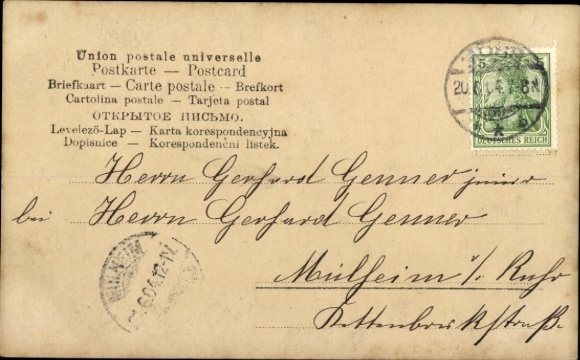 Union postale universelle
Postkarte — Postcard
Briefkaart — Carte postale — Brefkort
Cartolina postale — Tarjeta postal
ОТКРЫТОЕ ПИСЬМО.
Levelező-Lap — Karta korespondencyjna
Dopisnice — Korespondenční lístek.
5
DEUTSCHES REICH
Herrn Gerhard Genner junior
bei Herrn Gerhard Genner
Mülheim a/ Ruhr
MÜLHEIM
.6.04.12-1V.